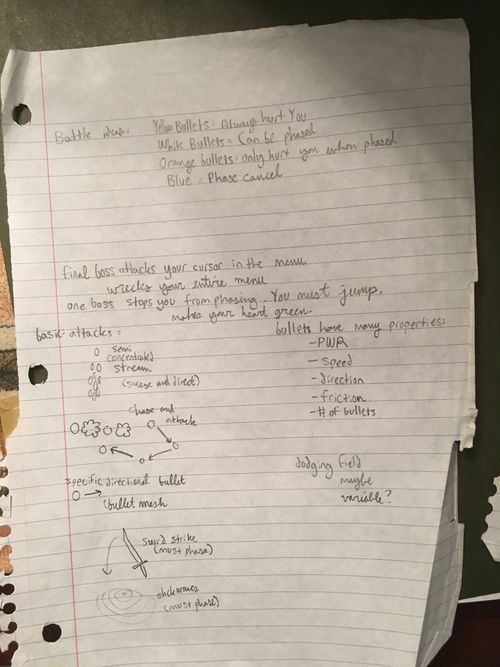 Battle ideas. Yellow Bullets = Always hurt You
White Bullets = Can be phased
Orange bullets = only hurt you when phased
Blue = Phase cancel
final boss attacks your cursor in the menu
wrecks your entire menu
one boss stops you from phasing. You must jump.
makes your heart green.
basic attacks =
semi
concentrated
stream
(sneeze and direct)
chase and
attack
specific directional bullet
(bullet mesh
sword strike
(must phase)
shckwaves
(must phase)
bullets have many properties:
- PWR
- speed
- direction
- friction
- # of bullets
dodging field
maybe
variable?